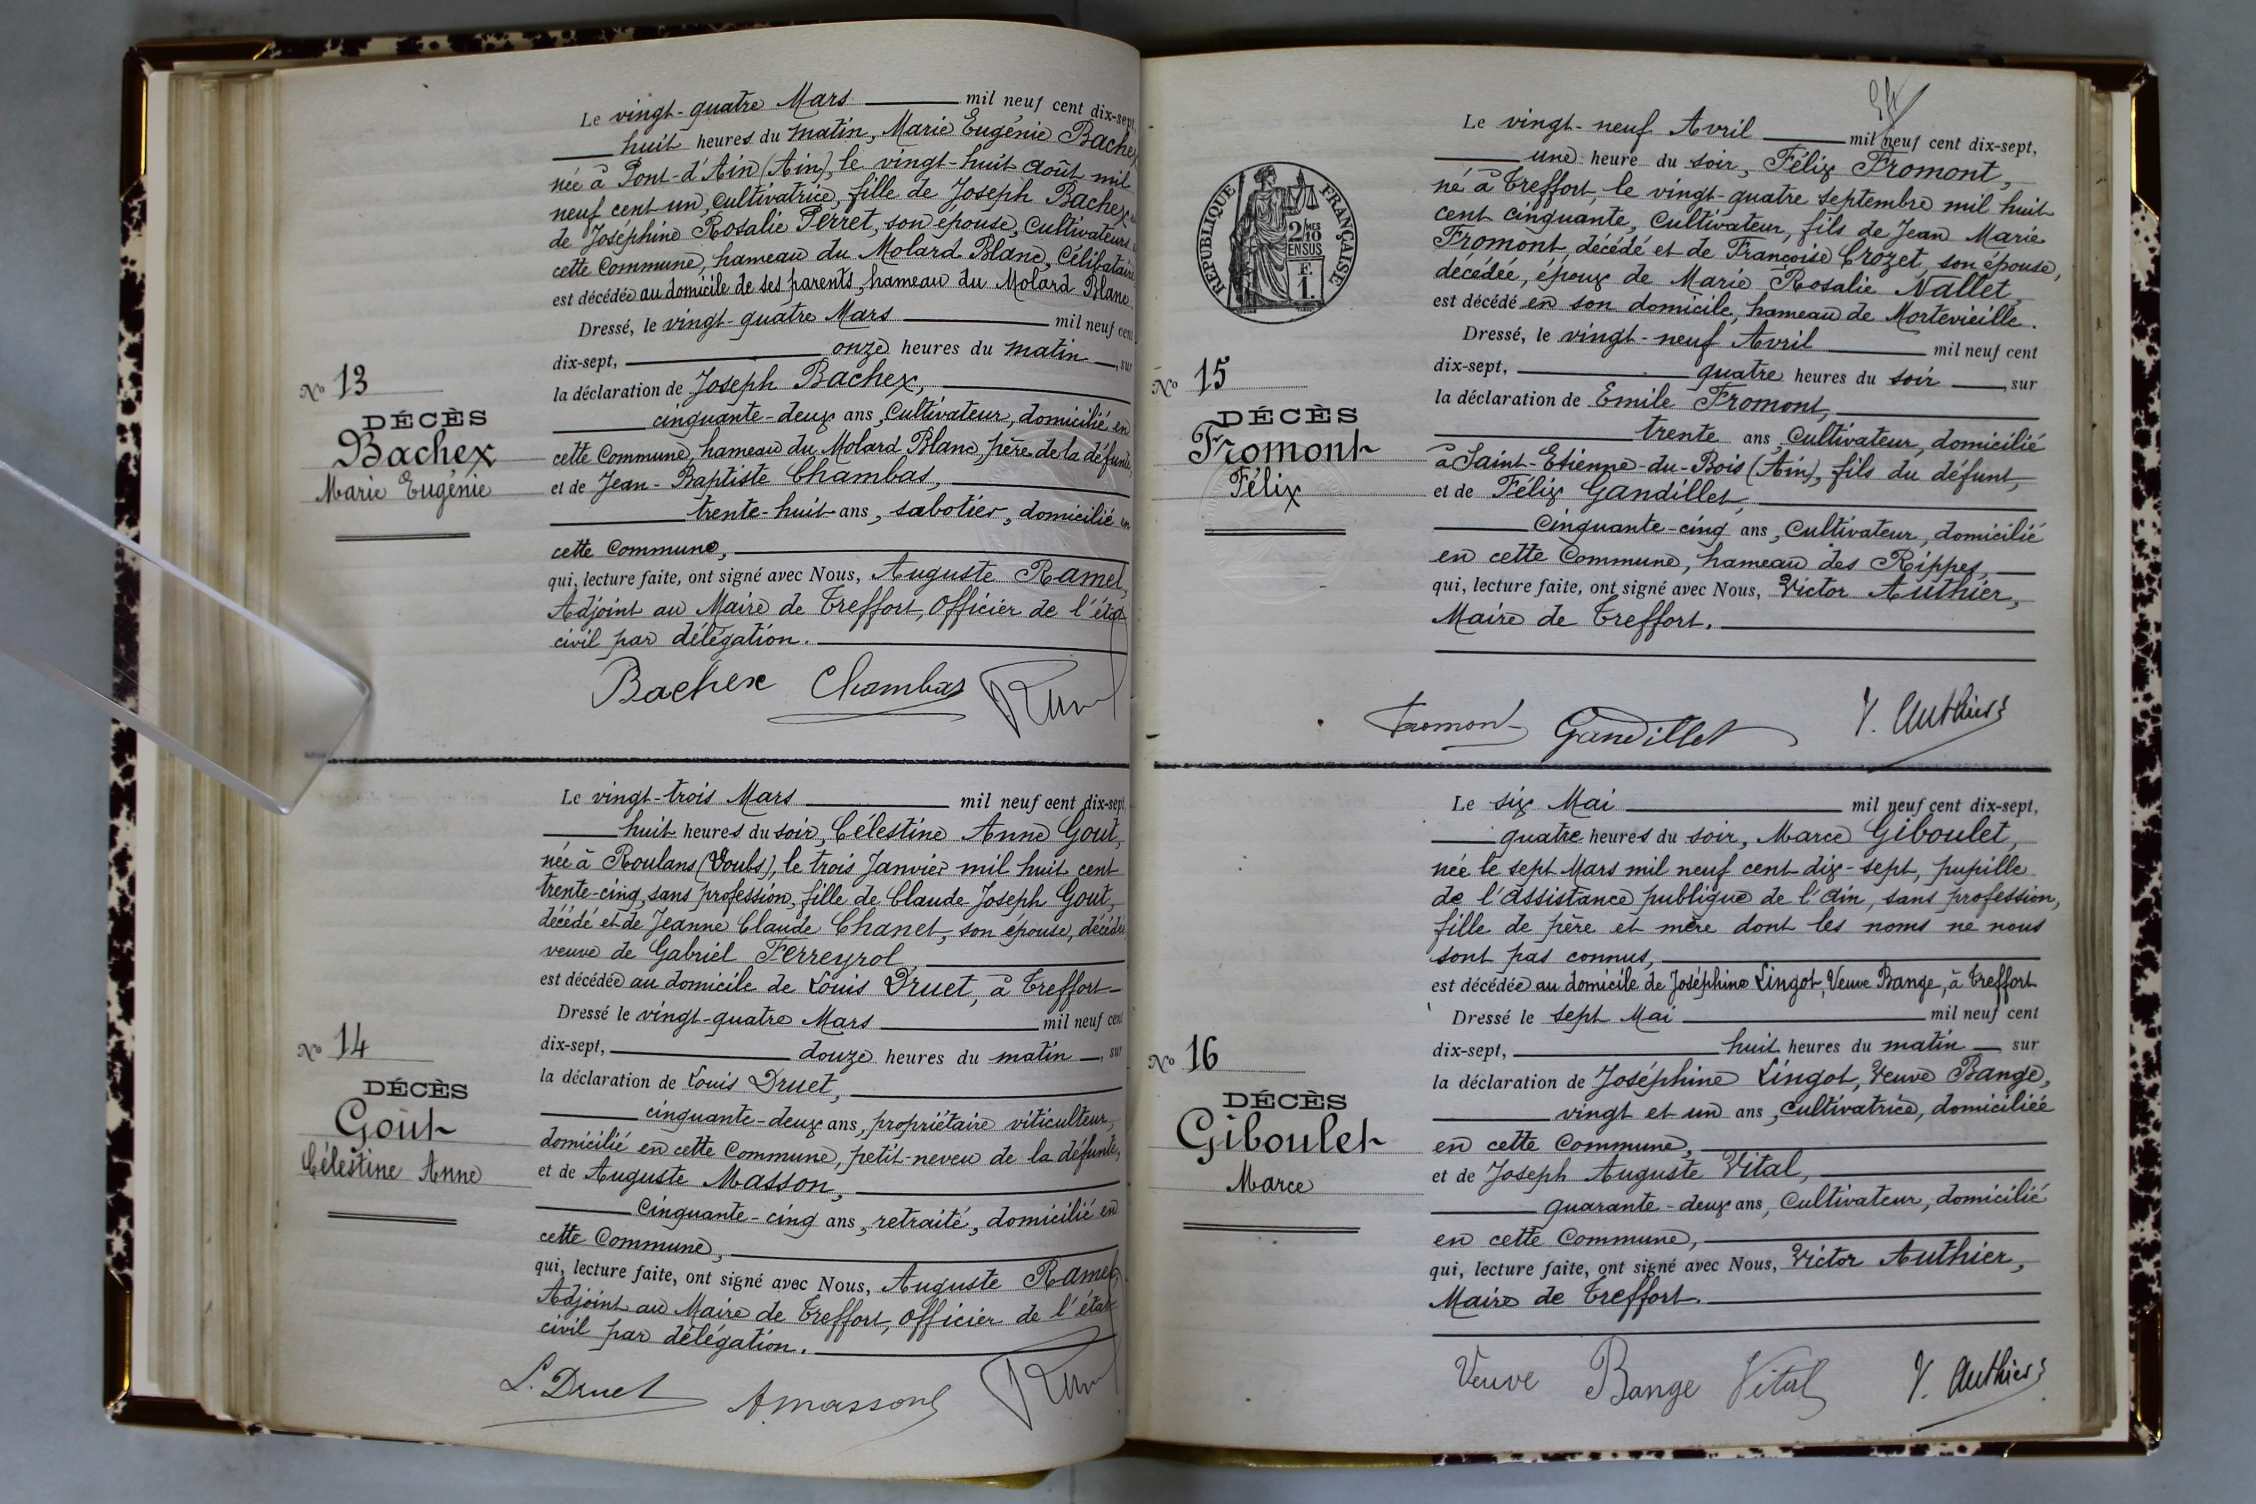 Le vingt-quatre Mars mil neuf cent dix-sept,
huit heures du matin, Marie Eugénie Bachex
née à Pont-d'Ain (Ain), le vingt-huit août mil
neuf cent un, cultivatrice, fille de Joseph Bachex
de Joséphine Rosalie Perret, son épouse, cultivateurs
cette Commune, hameau du Molard Blanc, Célibataire
est décédée au domicile de ses parents, hameau du Molard Blanc
Dressé, le vingt-quatre Mars mil neuf cent
dix-sept, onze heures du matin, sur
la déclaration de Joseph Bachex,
cinquante-deux ans, Cultivateur, domicilié en
cette Commune, hameau du Molard Blanc, père de la défunte,
et de Jean-Baptiste Chambas,
trente-huit ans, sabotier, domicilié en
cette Commune,
qui, lecture faite, ont signé avec Nous, Auguste Ramel,
Adjoint au Maire de Treffort, Officier de l'état
civil par délégation.
Bachex Chambas
No 13
DÉCÈS
Bachex
Marie Eugénie
Le vingt-trois Mars mil neuf cent dix-sept,
huit heures du soir, Célestine Anne Gout,
née à Roulans (Doubs), le trois Janvier mil huit cent
trente-cinq, sans profession, fille de Claude Joseph Gout,
décédé et de Jeanne Claude Chanet, son épouse, décédée
veuve de Gabriel Ferreyrol
est décédée au domicile de Louis Druet, à Treffort
Dressé le vingt-quatre Mars mil neuf cent
dix-sept, douze heures du matin, sur
la déclaration de Louis Druet,
cinquante-deux ans, propriétaire viticulteur,
domicilié en cette Commune, petit-neveu de la défunte,
et de Auguste Masson,
cinquante-cinq ans, retraité, domicilié en
cette Commune,
qui, lecture faite, ont signé avec Nous, Auguste Ramel,
Adjoint au Maire de Treffort, officier de l'état
civil par délégation.
L. Druet A. Masson
No 14
DÉCÈS
Gout
Célestine Anne
RÉPUBLIQUE FRANÇAISE
2/10 MES
EN SUS
F.
1.
Le vingt-neuf Avril mil neuf cent dix-sept,
une heure du soir, Félix Fromont,
né à Treffort, le vingt-quatre septembre mil huit
cent cinquante, Cultivateur, fils de Jean Marie
Fromont, décédé et de Françoise Crozet, son épouse,
décédée, époux de Marie Rosalie Nallet,
est décédé en son domicile, hameau de Mortevieille.
Dressé, le vingt-neuf Avril mil neuf cent
dix-sept, quatre heures du soir, sur
la déclaration de Emile Fromont,
trente ans, Cultivateur, domicilié
à Saint-Etienne-du-Bois (Ain), fils du défunt,
et de Félix Gandillet,
Cinquante-cinq ans, Cultivateur, domicilié
en cette Commune, hameau des Rippes,
qui, lecture faite, ont signé avec Nous, Victor Authier,
Maire de Treffort.
Fromont Gandillet V. Authier
No 15
DÉCÈS
Fromont
Félix
Le six Mai mil neuf cent dix-sept,
quatre heures du soir, Marce Giboulet,
née le sept Mars mil neuf cent dix-sept, pupille
de l'assistance publique de l'ain, sans profession,
fille de père et mère dont les noms ne nous
sont pas connus,
est décédée au domicile de Joséphine Lingot, Veuve Bange, à Treffort
Dressé le sept Mai mil neuf cent
dix-sept, huit heures du matin sur
la déclaration de Joséphine Lingot, Veuve Bange,
vingt et un ans, Cultivatrice, domiciliée
en cette Commune,
et de Joseph Auguste Vital,
quarante-deux ans, Cultivateur, domicilié
en cette Commune,
qui, lecture faite, ont signé avec Nous, Victor Authier,
Maire de Treffort.
Veuve Bange Vital V. Authier
No 16
DÉCÈS
Giboulet
Marce